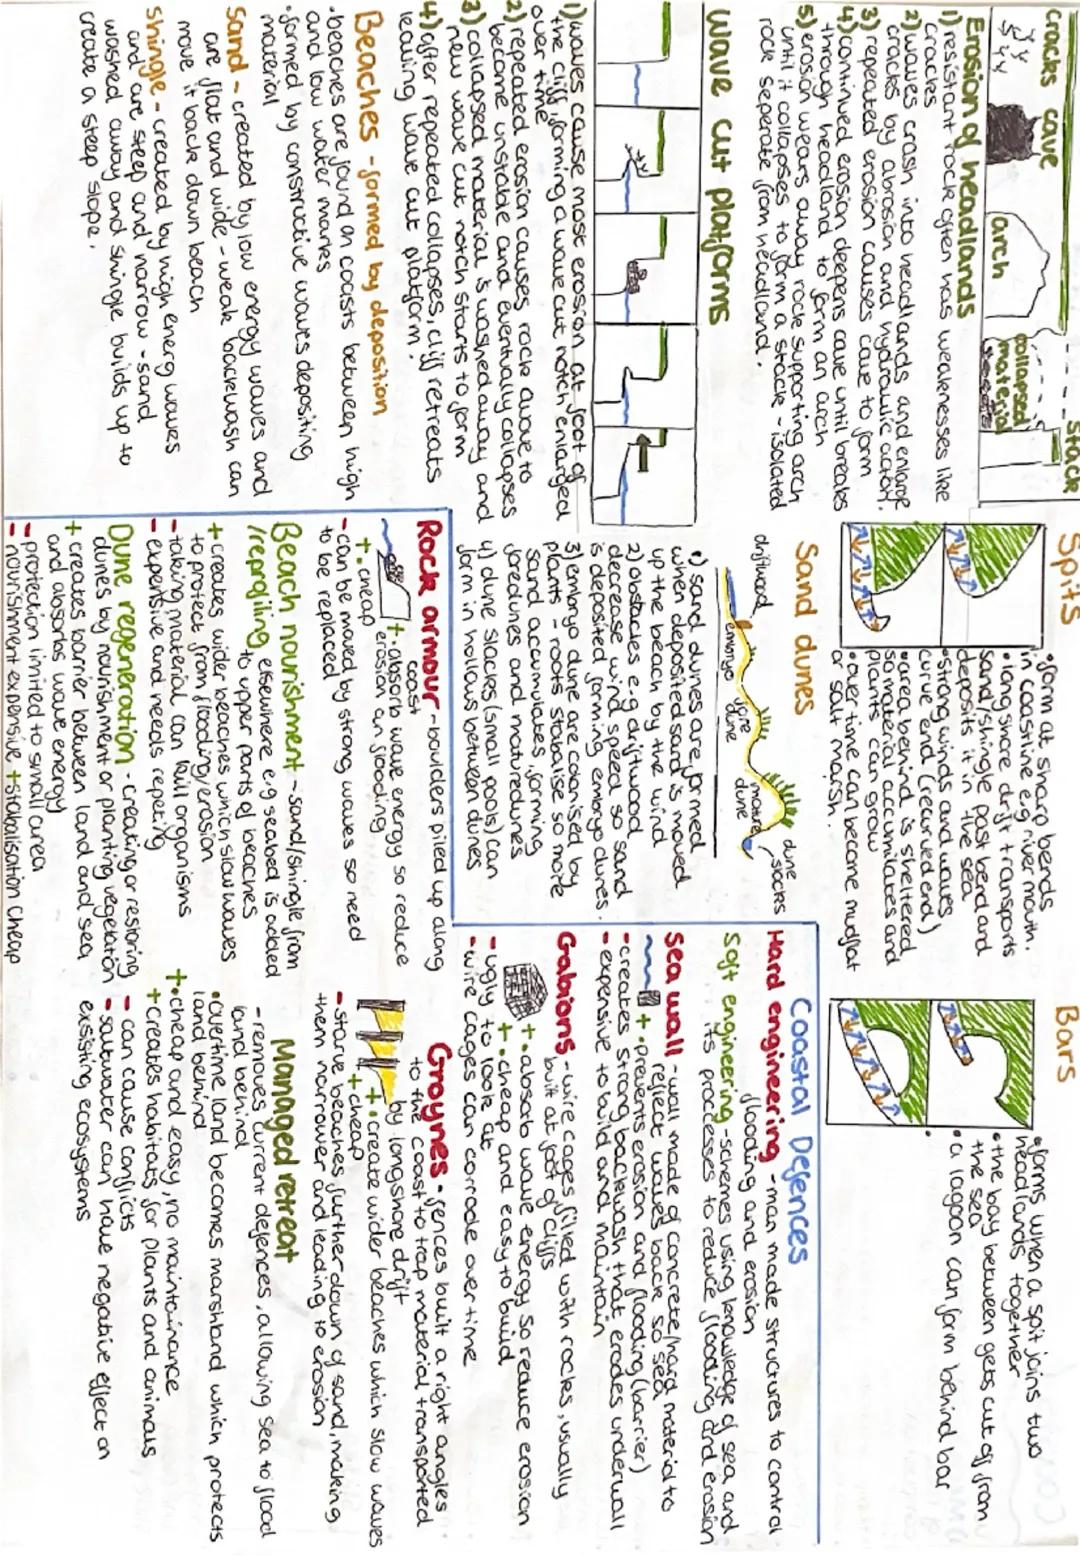 cracks cave
arch
collapsed
material
stack
Erosion of headlands
1) resistant rock often has weaknesses like
cracks
2) waves crash into headlands and enlarge
cracks by abrasion and hydraulic action.
3) repeated erosion causes cave to form
4) continued erosion deepens cave until breaks
through headland to form an arch
5) erosion wears away rock supporting arch
until it collapses to form a stack - isolated
rock seperate from headland.
wave cut platforms
1) waves cause most erosion at foot of
the cliff, forming a wave cut notch enlarged
over time
2) repeated erosion causes rock above to
become unstable and eventually collapses
3) collapsed material is washed away and
new wave cut notch starts to form
4) after repeated collapses, cliff retreats
leaving wave cut platform.
Beaches - formed by deposition
·beaches are found on coasts between high
and low water marks
·formed by constructive waves depositing
material
Sand - created by low energy waves and
are flat and wide - weak backwash can
move it back down beach
Shingle - created by high energy waves
and are steep and narrow - sand
washed away and shingle builds up to
create a steep slope.
Spits
•form at sharp bends
in coastline e.g river mouth.
•longshore drift transports
sand/shingle past bend and
deposits it in the sea
•strong winds and waves
curve end (recurved end)
•area behind is sheltered
so material accumilates and
plants can grow
•over time can become mudflat
or salt marsh.
Bars
•forms when a spit joins two
headlands together
•the bay between gets cut off from
the sea
•a lagoon can form behind bar
Sand dunes
driftwood
embryo
fore
dune
mature
dune
dune
slacks
1) sand dunes are formed
when deposited sand is moved
up the beach by the wind
2) obstacles e.g driftwood
decrease wind speed so sand
is deposited forming embryo dunes.
3) embryo dune are colonised by
plants - roots stabalise so more
sand accumulates, forming
foredunes and mature dunes
4) dune slacks (small pools) can
form in hollows between dunes
Coastal Defences
Hard engineering - man made structures to control
flooding and erosion
Soft engineering - schemes using knowledge of sea and
its processes to reduce flooding and erosion
Sea wall - wall made of concrete/hard material to
reflect waves back so sea
+ •prevents erosion and flooding (barrier)
- •creates strong backwash that erodes under wall
- expensive to build and maintain
Gabions - wire cages filled with rocks, usually
built at foot of cliffs
+ •absorb wave energy so reduce erosion
+ •cheap and easy to build
- ugly to look at
- wire cages can corrode over time
Rock armour - boulders piled up along
coast
+ •absorb wave energy so reduce
erosion an flooding
+ •cheap
- can be moved by strong waves so need
to be replaced
Groynes - fences built a right angles
to the coast to trap material transported
by longshore drift
+ •create wider beaches which slow waves
+ cheap
- starve beaches further down of sand, making
them narrower and leading to erosion
Beach nourishment - sand/shingle from
/reprofiling elsewhere e.g seabed is added
to upper parts of beaches
+ creates wider beaches which slow waves
to protect from flooding/erosion
- taking material can kill organisms
- expensive and needs repeating
Dune regeneration - creating or restoring
dunes by nourishment or planting vegetation
+ creates barrier between land and sea
and absorbs wave energy
- protection limited to small area
- nourishment expensive +stabalisation cheap
Managed retreat
- removes current defences, allowing sea to flood
land behind
•overtime land becomes marshland which protects
land behind
+ •cheap and easy, no maintainance
+ creates habitats for plants and animals
- can cause conflicts
- saltwater can have negative effect on
existing ecosystems